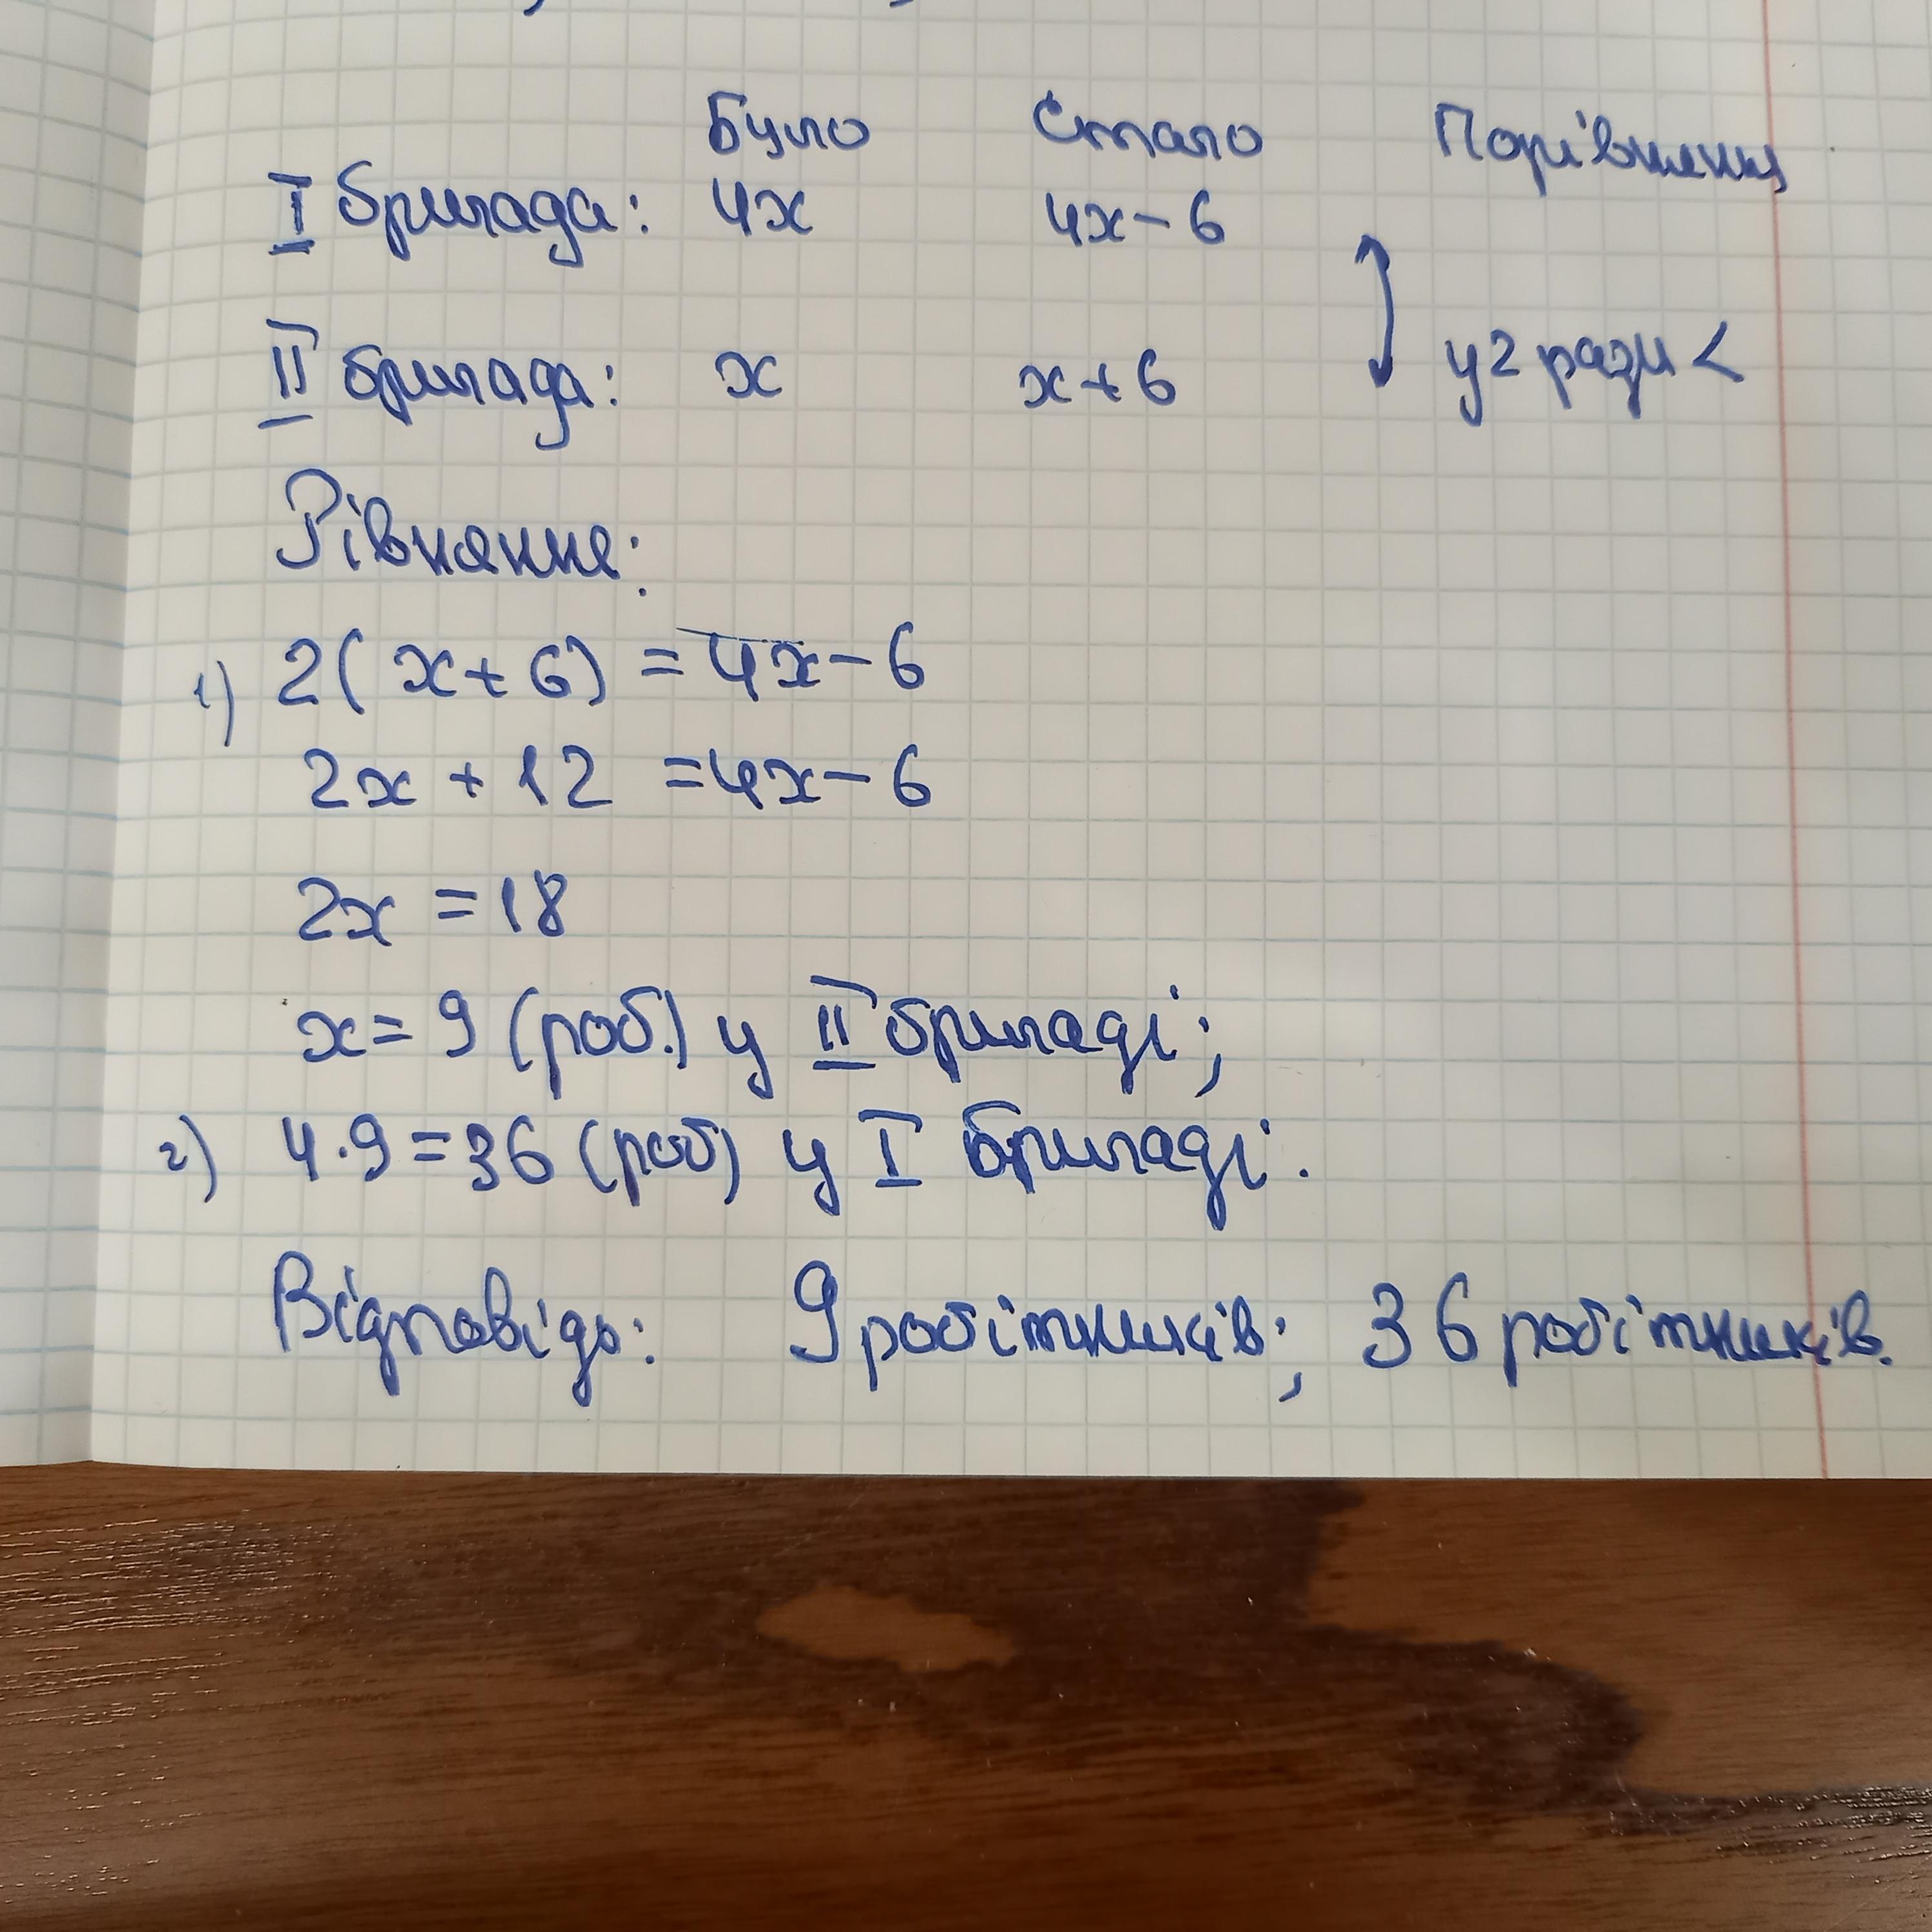 Було Стало Порівняння
I бригада: 4x 4x - 6
II бригада: x x + 6 у 2 рази <
Рівняння:
1) 2(x + 6) = 4x - 6
2x + 12 = 4x - 6
2x = 18
x = 9 (роб.) у II бригаді;
2) 4 · 9 = 36 (роб) у I бригаді.
Відповідь: 9 робітників; 36 робітників.